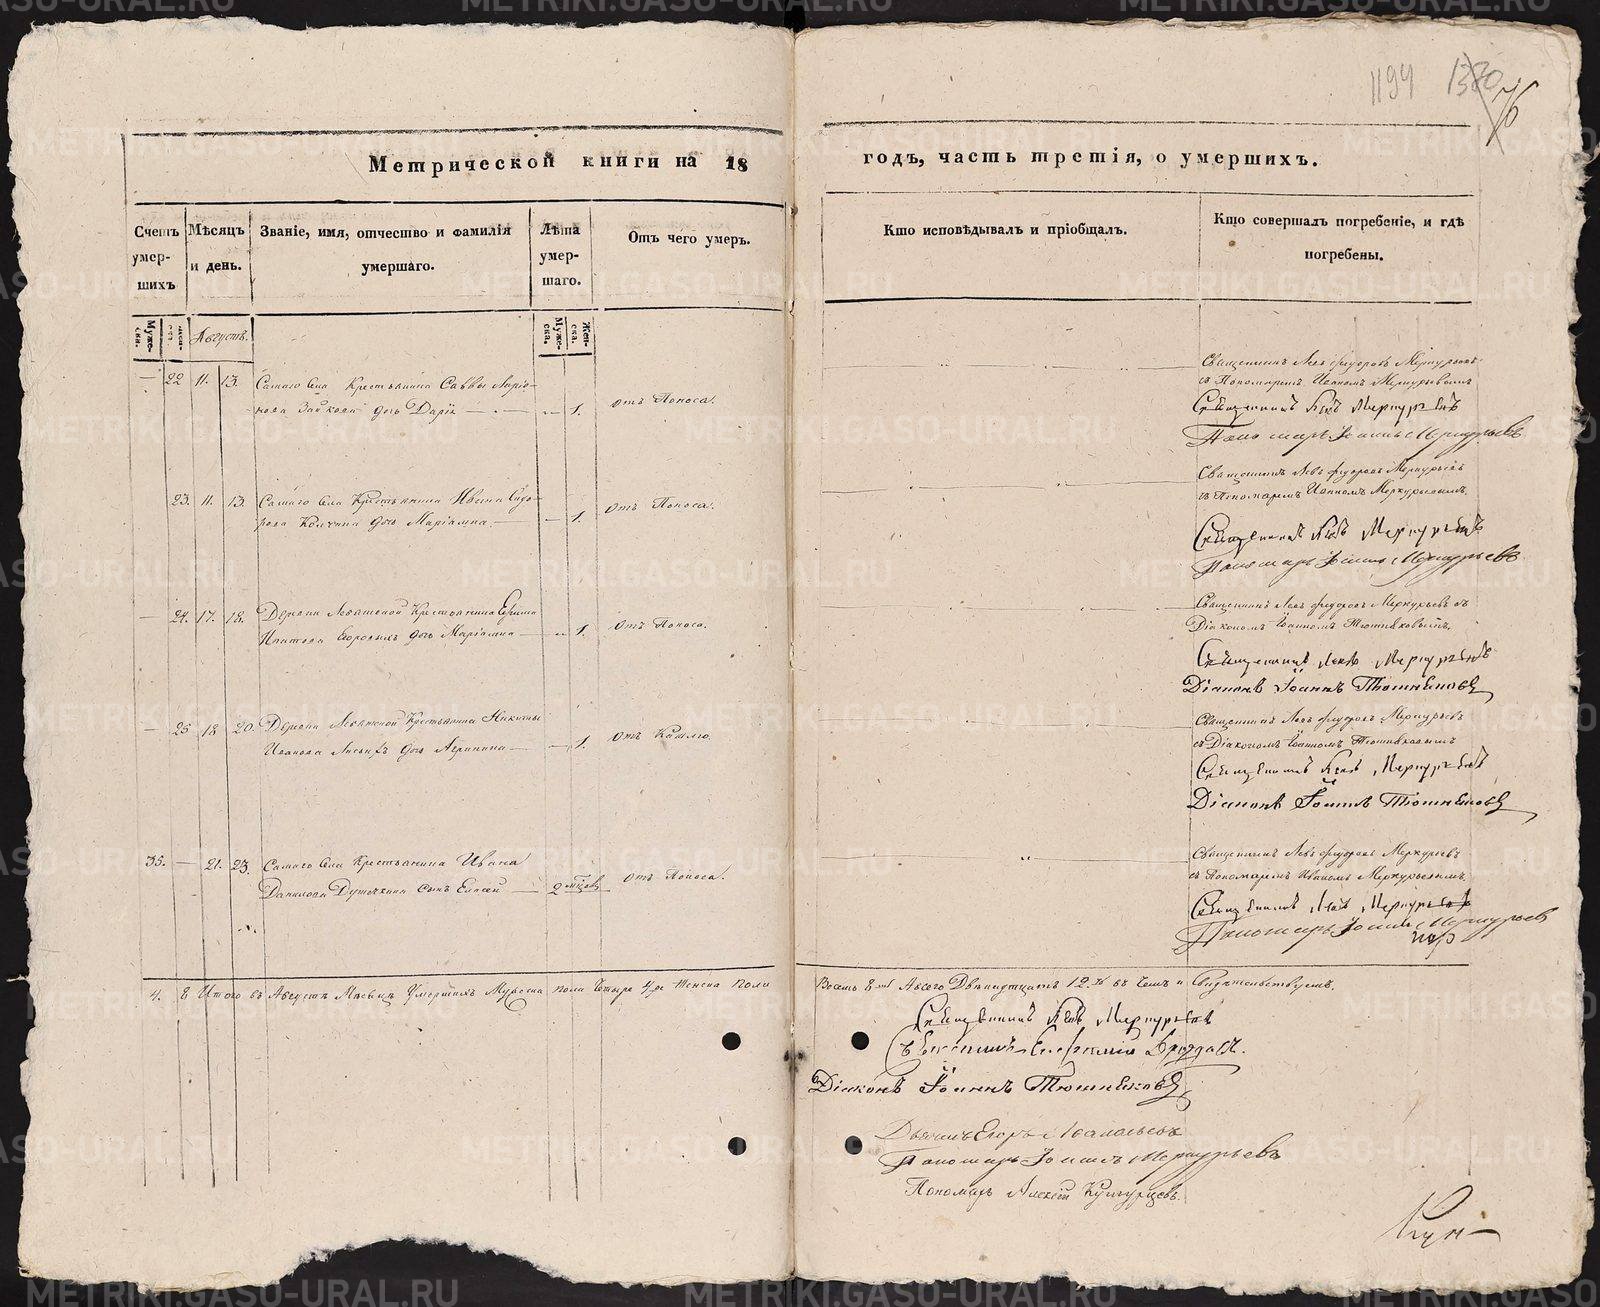 1194 1380 76
Метрической книги на 18 годъ, часть третія, о умершихъ.
Счетъ умер- шихъ
Мѣсяцъ и день.
Званіе, имя, отчество и фамилія умершаго.
Лѣта умер- шаго.
Отъ чего умеръ.
Кто исповѣдывалъ и пріобщалъ.
Кто совершалъ погребеніе, и гдѣ погребены.
Муже- ска.
Августъ.
Муже- ска.
Жен- ска.
— 22 11. 13. Самаго Села Крестьянина Саввы Ларіо-
нова Зайкова дочь Дарія — 1. Отъ Поноса.
Священникъ Левъ Федоровъ Меркурьевъ
съ Пономаремъ Иваномъ Меркурьевымъ
Священникъ Левъ Меркурьевъ
Пономарь Іоаннъ Меркурьевъ
23. 11. 13. Самаго Села Крестьянина Ивана Сидо-
рова дочь Маріамна — 1. Отъ Поноса.
Священникъ Левъ Федоровъ Меркурьевъ
съ Пономаремъ Иваномъ Меркурьевымъ.
Священникъ Левъ Меркурьевъ
Пономарь Іоаннъ Меркурьевъ
— 24. 17. 18. Деревни Крестьянина Ефима
дочь Маріамна — 1. Отъ Поноса.
Священникъ Левъ Федоровъ Меркурьевъ съ
Діакономъ Іоанномъ Тюшняковымъ.
Священникъ Левъ Меркурьевъ
Діаконъ Іоаннъ Тюшняковъ
— 25 18 20. Деревни Крестьянина Никиты
Иванова дочь Агрипина — 1. Отъ Кашлю.
Священникъ Левъ Федоровъ Меркурьевъ
съ Діакономъ Іоанномъ Тюшняковымъ
Священникъ Левъ Меркурьевъ
Діаконъ Іоаннъ Тюшняковъ
35. — 21. 23. Самаго Села Крестьянина Ивана
Данилова сынъ Елисей — 2 мѣсяц. Отъ Поноса.
Священникъ Левъ Федоровъ Меркурьевъ
съ Пономаремъ Иваномъ Меркурьевымъ.
Священникъ Левъ Меркурьевъ
Пономарь Іоаннъ Меркурьевъ
4. 8 Итого въ Августѣ Месяцѣ Умершихъ Мужеска пола Четыре 4ре Женска Пола Восемь 8мь Двенатцать 12ть въ чемъ и Свидетельствуемъ.
Священникъ Левъ Меркурьевъ
Священникъ
Діаконъ Іоаннъ Тюшняковъ
Дьячекъ Егоръ
Пономарь Іоаннъ Меркурьевъ
Пономарь Алексій Кунгурцевъ.
METRIKI.GASO-URAL.RU